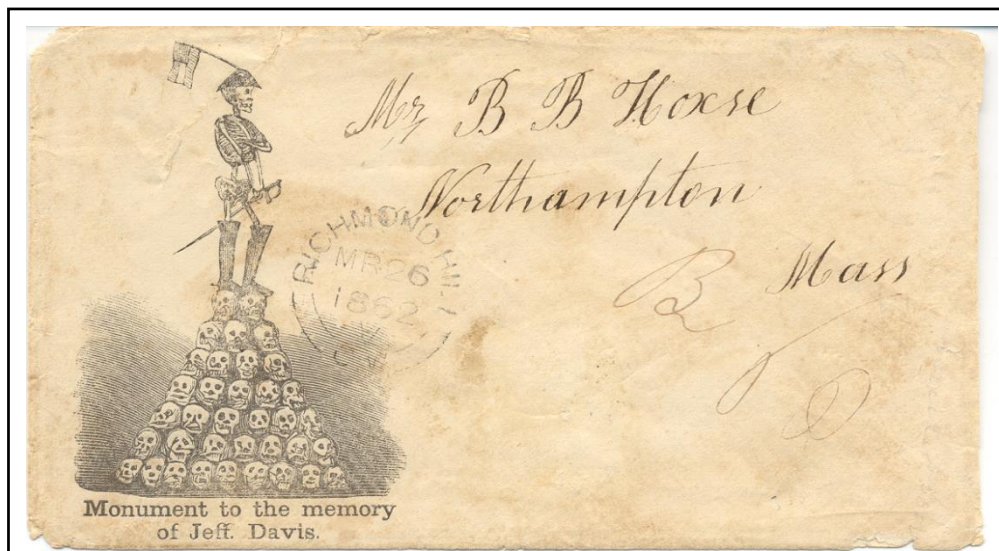 Mr B B Hoxse
Northampton
Mass
RICHMOND HILL
MR 26
1862
C.W.
Monument to the memory
of Jeff. Davis.